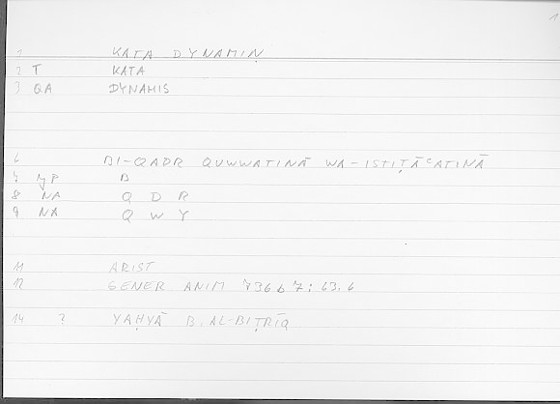 1
1 KATA DYNAMIṆ
2 T KATA
3 QA DYNAMIS
6 BI-QADR QUWWATINĀ WA-ISTIṬĀʿATINĀ
7 P B
8 NA Q D R
9 NA Q W Y
11 ARIST
12 GENER ANIM 736 b 7; 63.6
14 ? YAḤYĀ B. AL-BIṬRĪQ